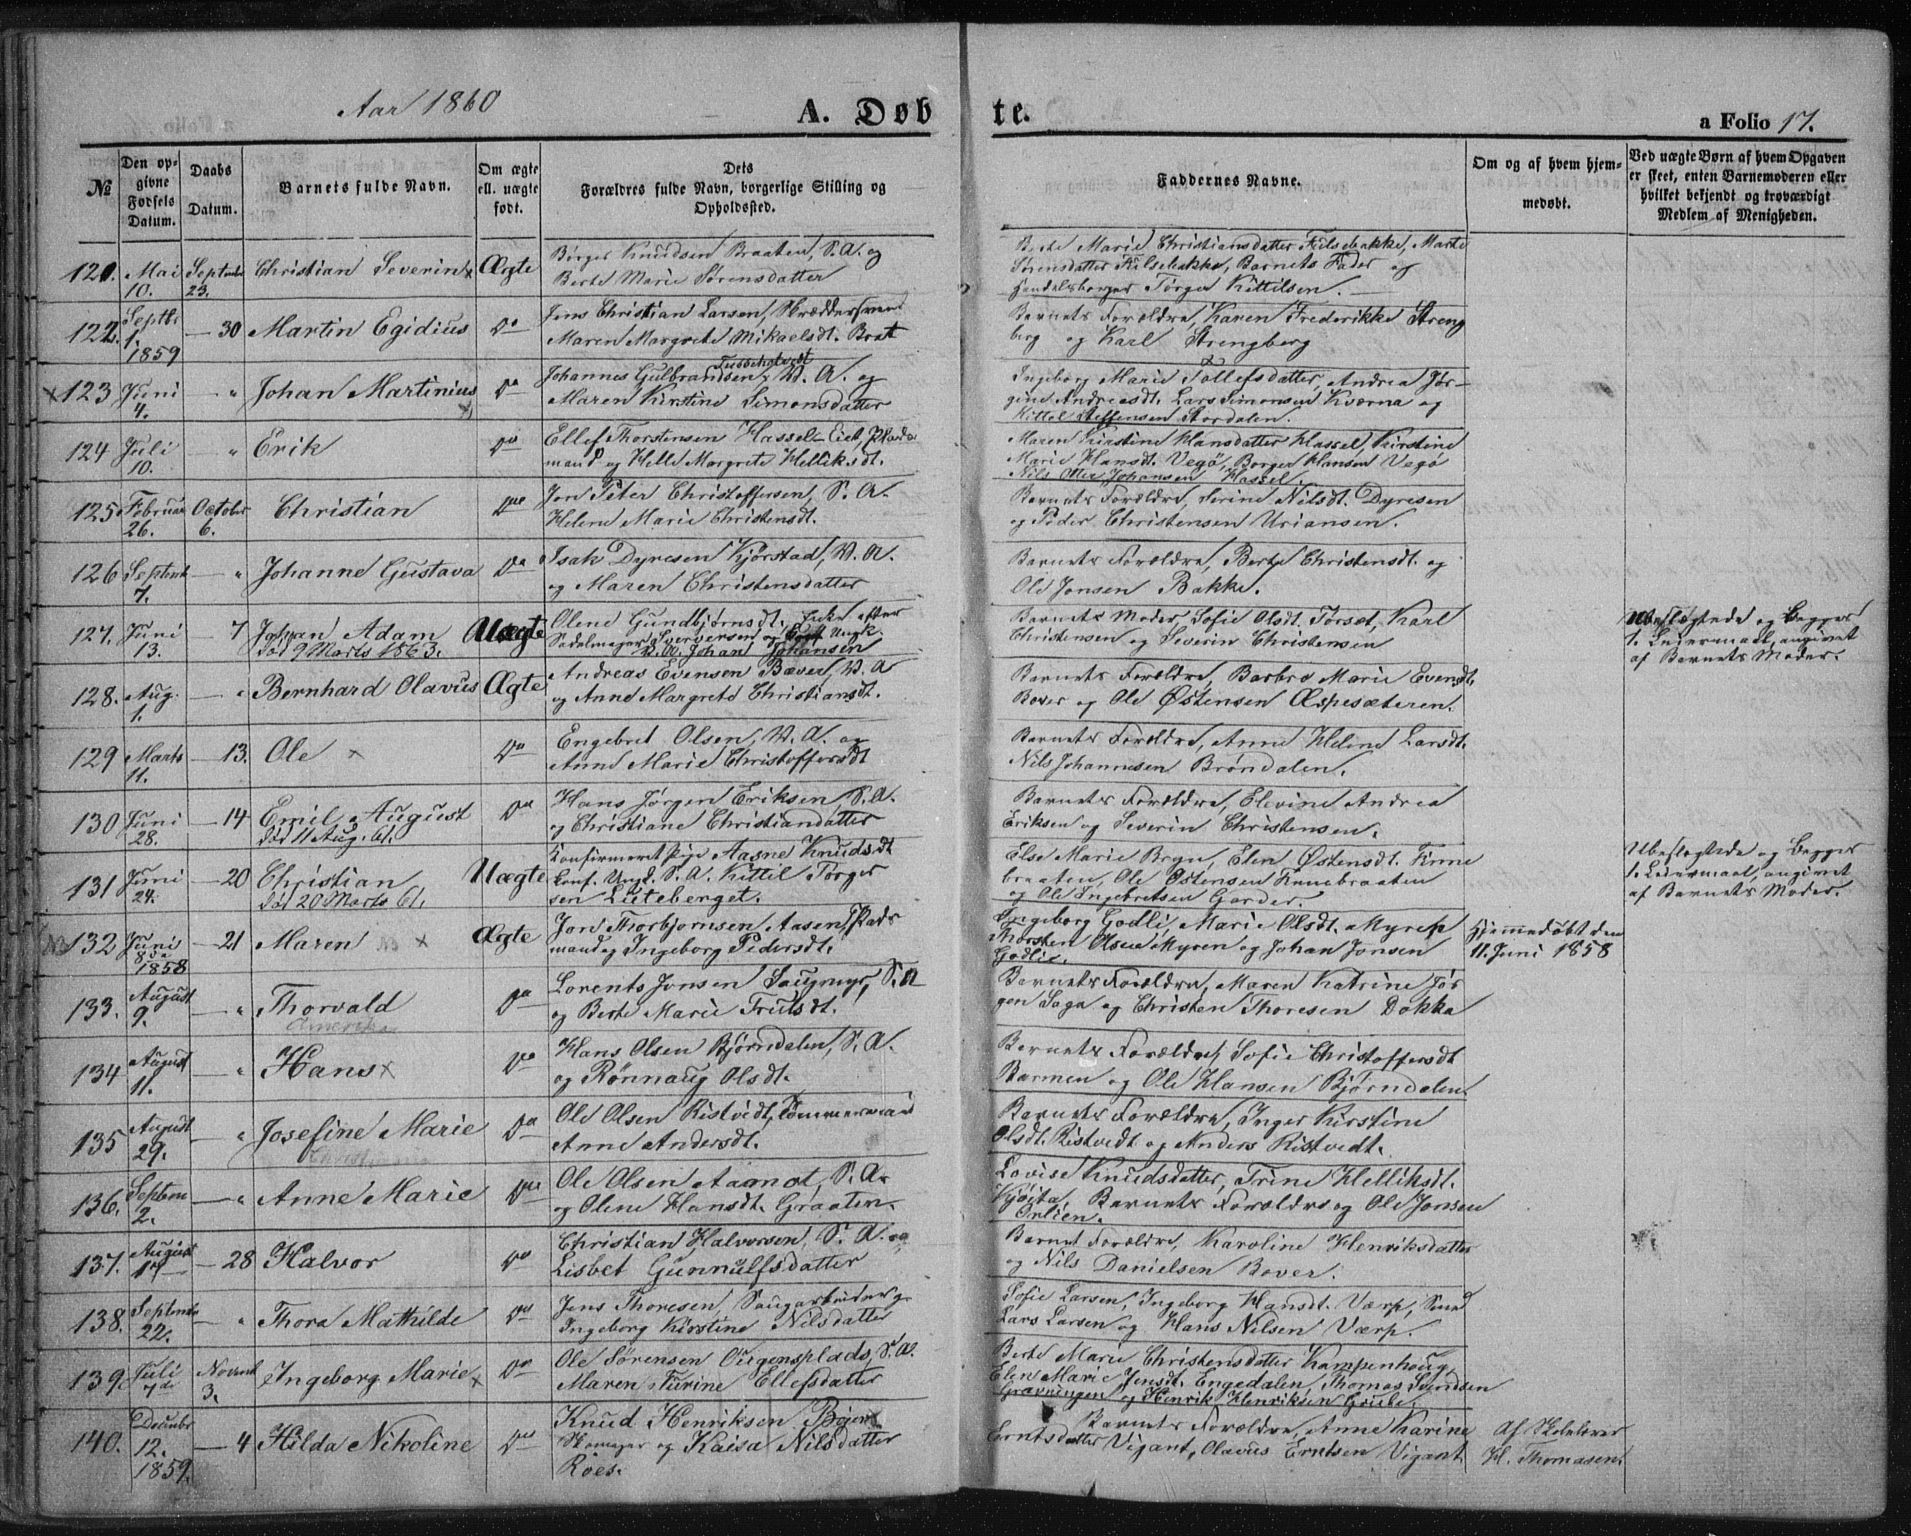 Aar 1860
A. Døbte.
a Folio 17.
№
Den opgivne Fødsels Datum.
Daabs Datum.
Barnets fulde Navn.
Om ægte ell. uægte født.
Dets Forældres fulde Navn, borgerlige Stilling og Opholdssted.
Faddernes Navne.
Om og af hvem hjemmedøbt.
Ved uægte Børn af hvem Opgaven er skeet, enten Barnemoderen eller hvilket bekjendt og troværdigt Medlem af Menigheden.
121. Mai 10. Septembr 23. Christian Severin x Ægte
Børger Knudsen Braaten, S. A. og
Berte Marie Sørensdatter
Berte Marie Christiansdatter Fulsebakke, Marte
Sørensdatter Fulsebakke, Barnets Fader og
Handelsborger Tørger Kittilsen.
122. Septbr 1. 1859 — 30 Martin Egidius Do
Jens Christian Larsen, Skræddersvend
Maren Margrete Mikaelsdt. Brat
Barnets Forældre, Karen Frederikke Streng
berg og Karl Strengberg
x 123 Juni 4. — " Johan Martinius Do
Johannes Gulbrandsen, V. A. og
Maren Kirstine Simonsdatter
Ingeborg Marie Tollefsdatter, Andrea Jør-
gine Andreasdt. Lars Simonsen Kværna og
Kittel Steffensen Stordalen.
124 Juli 10. — " Erik Do
Ellef Thorstensen Hassel-Eiet, Plads
mand og Helle Margrete Helliksdt.
Maren Kirstine Hansdatter Hassel, Kirstine
Marie Hansdt. Vegø, Borger Hansen Vegø
Nils Otter Johansen Hassel.
125 Februar 26. October 6. Christian Do
Jon Peter Christoffersen, S. A.
Helene Marie Christensdt.
Barnets Forældre, Serine Nilsdt. Dyresen
og Peder Christensen Uriansen.
126 Septemb 7. — " Johanne Gustava Do
Isak Dyresen Kjørstad, V. A.
og Maren Christensdatter
Barnets Forældre, Berte Christensdt. og
Ole Jonsen Bakke.
127. Juni 13. — 7 Johan Adam Uægte
død 9 Marts 1863.
Olene Gundbjørnsdt. Enke efter
Sadelmager Syversen og Ungk.
V. A. Johan Johansen
Barnets Moder, Sofie Olsdt. Torsot, Karl
Christensen og Severin Christensen
Ubeslægtede og Begges
1. Leiermaal, angivet
af Barnets Moder.
128. Aug. 1. — " Bernhard Olavus Ægte
Andreas Evensen Bæver, V. A
og Anne Margrete Christiansdt.
Barnets Forældre, Barbro Marie Evensdt.
Bover og Ole Østensen Æspesæteren.
129 Marts 11. — 13. Ole x Do
Engebret Olsen, V. A. og
Anne Marie Christoffersdt
Barnets Forældre, Anne Helene Larsdt.
Nils Johannesen Brøndalen.
130 Juni 28. — 14 Emil August Do
død 11 Aug. 61.
Hans Jørgen Eriksen, S. A.
og Christiane Christiandatter
Barnets Forældre, Elevine Andrea
Eriksen og Severin Christensen.
131 Juni 24. — 20 Christian Uægte
død 20 Marts 61.
Konfirmeret Pige Aasne Knudsdt
konf. Ungk. S. A. Kittil Tørger
sen Liteberget.
Else Marie Bryn, Elen Østensdt. Finne
braaten, Ole Østensen Finnebraaten
og Ole Ingebretsen Garder.
Ubeslægtede og Begges
1. Leiermaal, angivet
af Barnets Moder.
132 Juni 8de 1858 — 21 Maren x Ægte
Jon Thorbjørnsen Aasen, Plads
mand og Ingeborg Pedersdt.
Ingeborg Godli, Marie Olsdt. Myren
Thorsten Olsen Myren og Johan Jonsen
Godlie.
Hjemmedøbt den
11. Juni 1858
133. August 9. — " Thorvald Do
Amerika
Lorents Jonsen Saugmyr, S. A
og Berte Marie Trulsdt.
Barnets Forældre, Maren Katrine Jør
gen Saga og Christen Thoresen Dokka
134 August 11. — " Hans x Do
Hans Olsen Bjørndalen, S. A.
og Rønnaug Olsdt.
Barnets Forældre, Sofie Christoffersdt
Barmen og Ole Hansen Bjørndalen
135 August 29. — " Josefine Marie Do
Ole Olsen Ristvedt, Tømmermand
Anne Andersdt.
Barnets Forældre, Inger Kirstine
Olsdt. Ristvedt og Anders Ristvedt.
136. Septem 2. — " Anne Marie Do
Ole Olsen Aamot, S. A.
og Olene Hansdt. Graaten.
Lovise Knudsdatter, Trine Helliksdt.
Kjøita, Barnets Forældre og Ole Jonsen
Ørlien.
137. August — 28 Halvor Do
Christian Halvorsen, S. A. og
Lisbet Gunnulfsdatter
Barnet Forældre, Karoline Henriksdatter
og Nils Danielsen Bover.
138. Septembr 22. — " Thora Mathilde Do
Jens Thoresen, Saugarbeider og
Ingeborg Kirstine Nilsdatter
Sofie Larsen, Ingeborg Hansdt. Værp, Smed
Lars Larsen og Hans Nilsen Værp.
139. Juli 7de Novemb 3. Ingeborg Marie x Do
Ole Sørensen Oiegensplads, S. A.
Maren Turine Ellefsdatter
Berte Marie Christensdatter Kampenhoug
Elen Marie Jensdt. Engedalen, Thomas Svendsen
Gravningen og Henrik Henriksen Grube.
140. Decembr 12. 1859. — 4 Hilda Nikoline Do
Knud Henriksen Bøjer
Skomager og Kaisa Nilsdatter
Roes.
Barnets Forældre, Anne Karine
Erntsdatter Vigant, Olavus Erntsen Vigant.
Af Skolelærer
H. Thomasen.